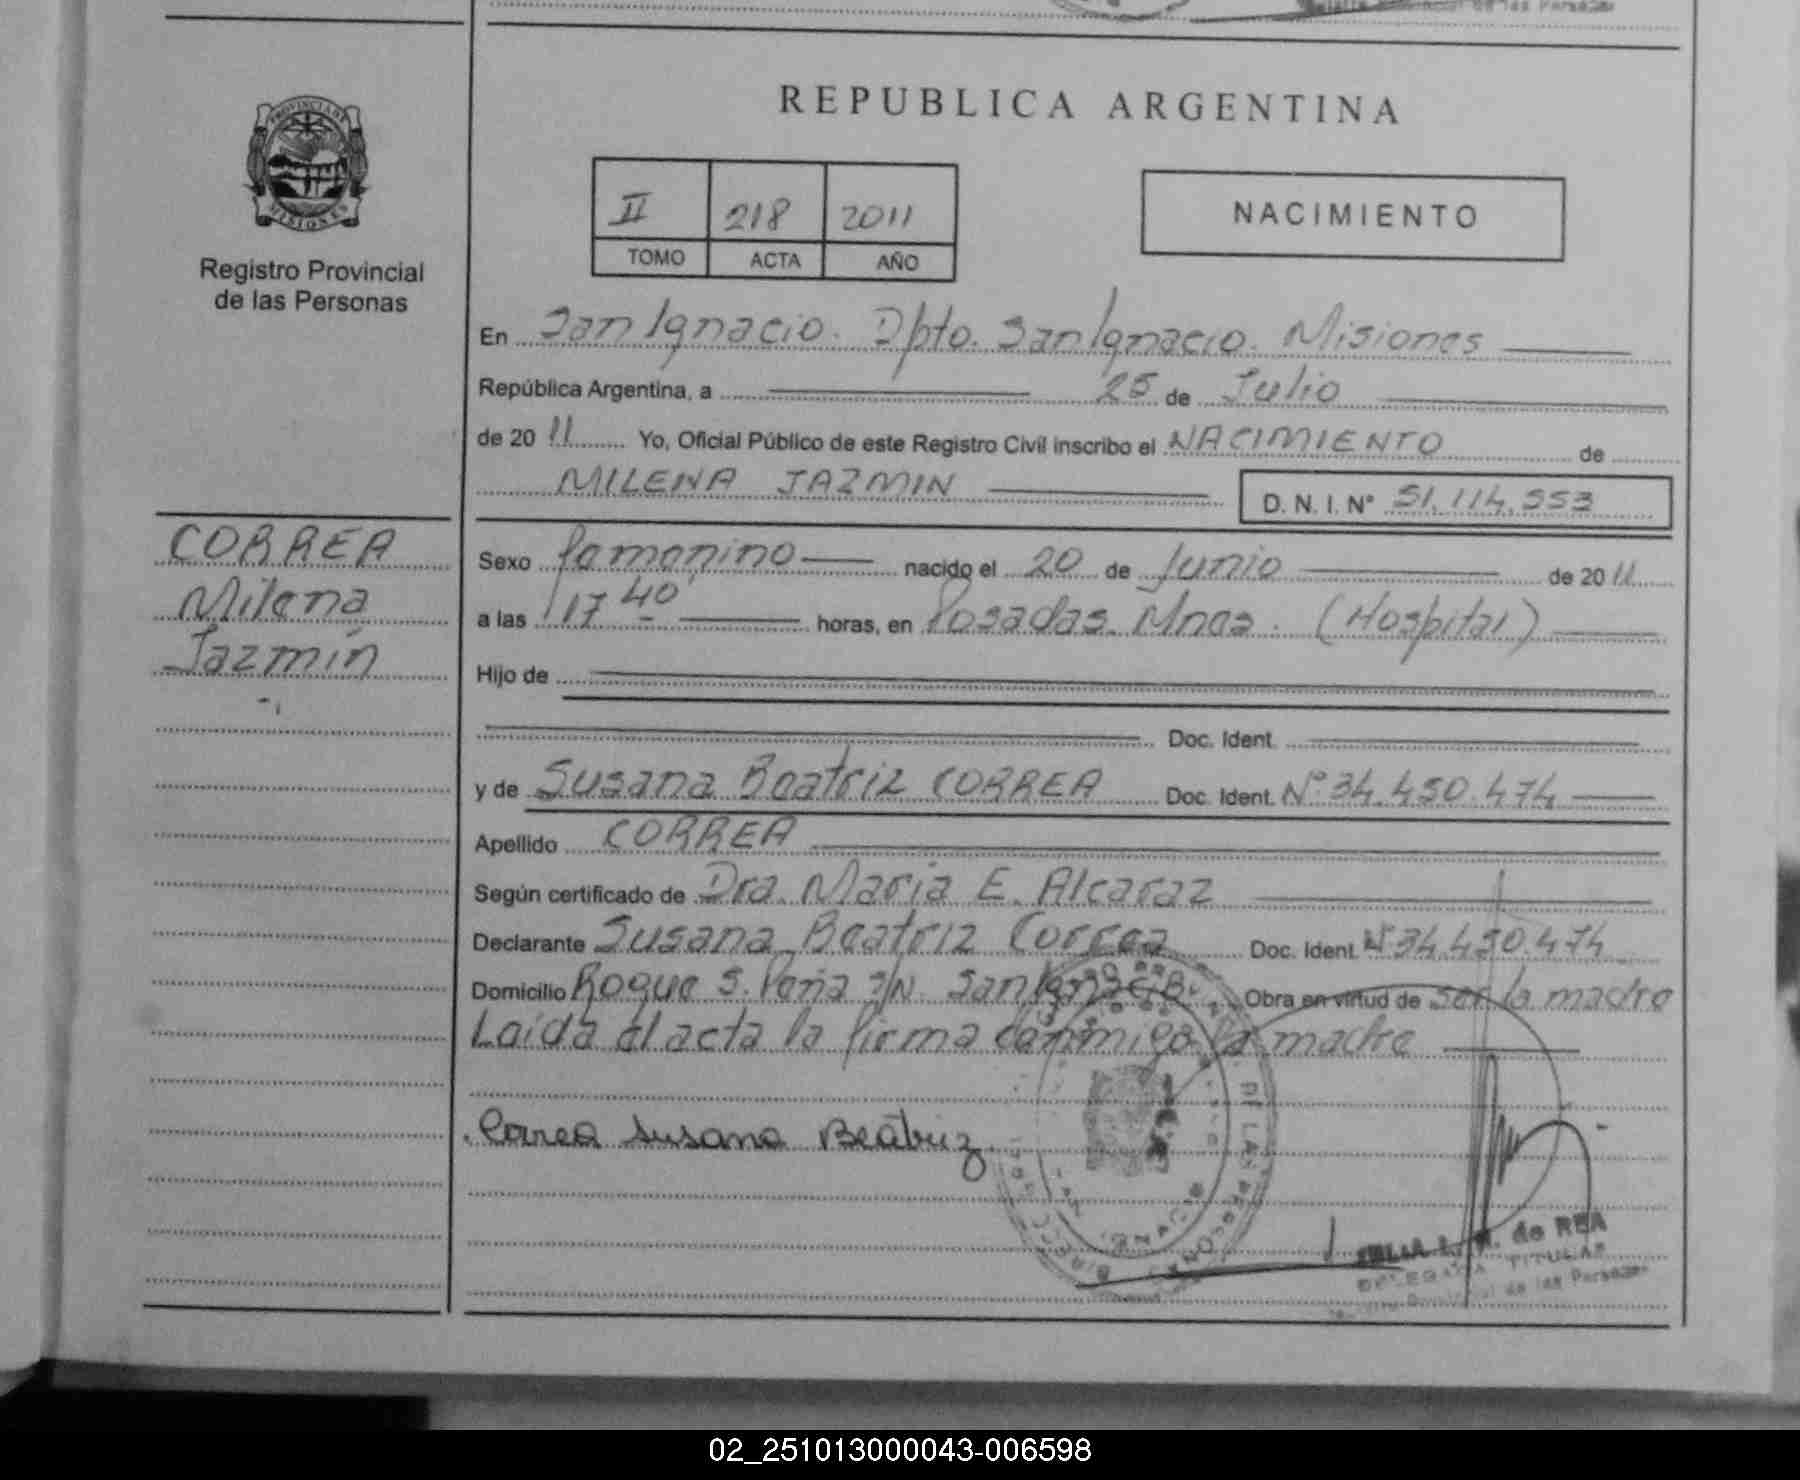 REPUBLICA ARGENTINA
PROVINCIA DE
MISIONES
Registro Provincial
de las Personas
II 218 2011
TOMO ACTA AÑO
NACIMIENTO
En San Ignacio. Dpto. San Ignacio. Misiones
República Argentina, a 25 de Julio
de 20 11 Yo, Oficial Público de este Registro Civil inscribo el NACIMIENTO de
MILENA JAZMIN D. N. I. N° 51.114.553
CORREA
Milena
Jazmín
Sexo femenino nacido el 20 de Junio de 20 11
a las 17 40' horas, en Posadas. Mnes. (Hospital)
Hijo de
Doc. Ident.
y de Susana Beatriz CORREA Doc. Ident. N° 34.450.474
Apellido CORREA
Según certificado de Dra. Maria E. Alcaraz
Declarante Susana Beatriz Correa Doc. Ident. N° 34.450.474
Domicilio Roque S. Peña S/N. San Ignacio. Obra en virtud de ser la madre
Leída el acta la firma conmigo la madre
Correa Susana Beatriz
de REA
DELEGADA TITULAR
de las Personas
02_251013000043-006598